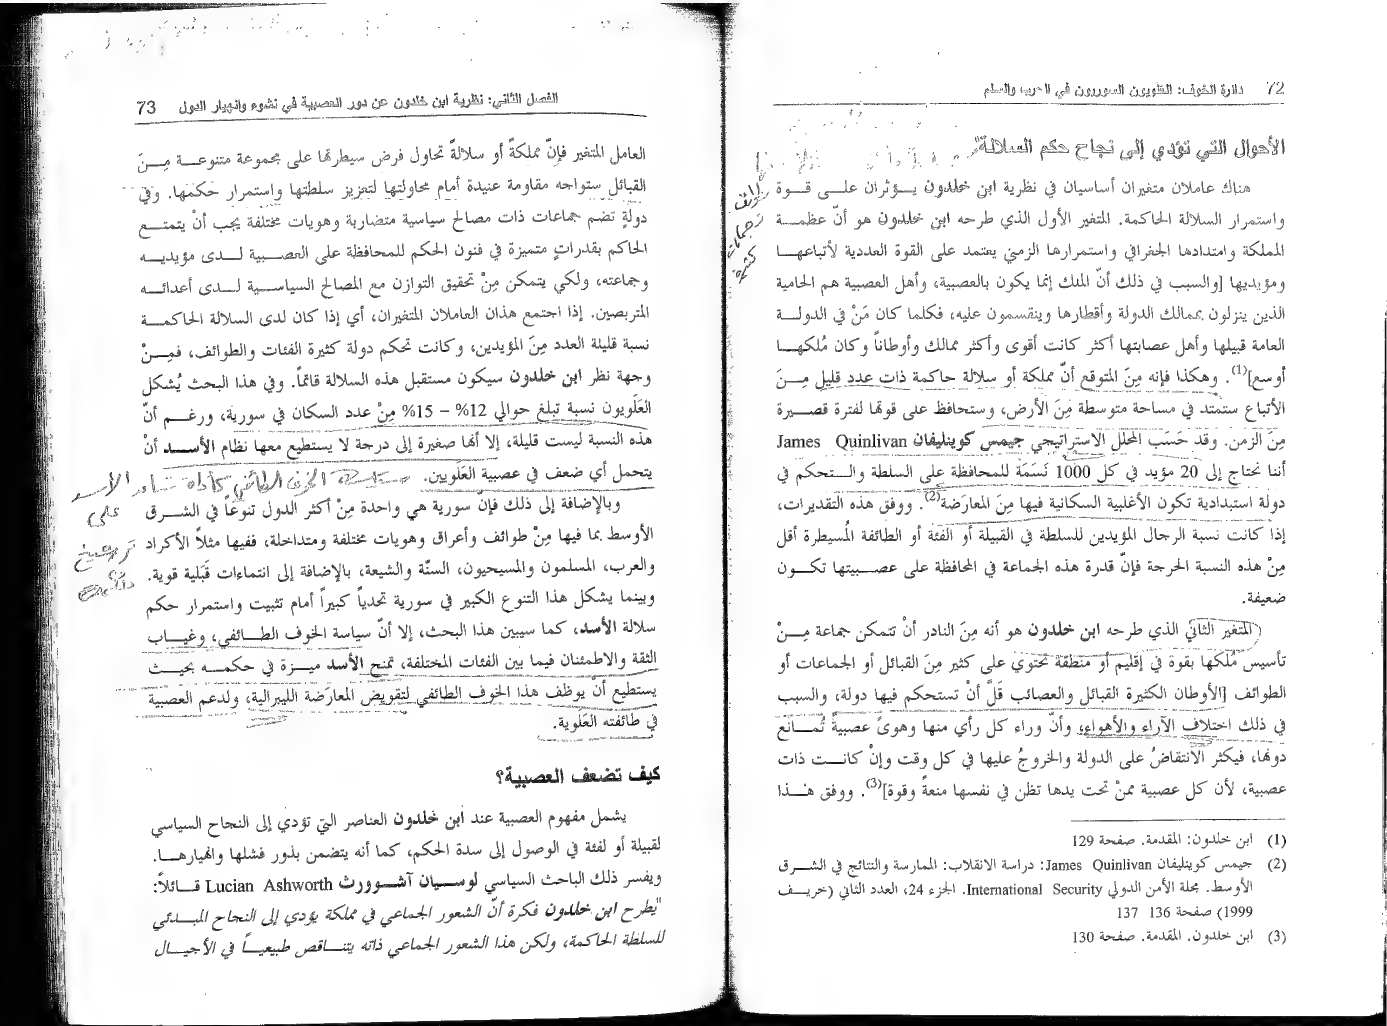 72 دائرة الخوف: العلويون السوريون في الحرب والسلم
الأحوال التي تؤدي إلى نجاح حكم السلالة
هناك عاملان متغيران أساسيان في نظرية ابن خلدون يـؤثران علـى قـوة
واستمرار السلالة الحاكمة. المتغير الأول الذي طرحه ابن خلدون هو أنّ عظمـة
المملكة وامتدادها الجغرافي واستمرارها الزمنيّ يعتمد على القوة العددية لأتباعهـا
ومؤيديها [والسبب في ذلك أنّ الملك إنما يكون بالعصبية، وأهل العصبية هم الحامية
الذين ينزلون بممالك الدولة وأقطارها وينقسمون عليه، فكلما كان مَنْ في الدولـة
العامة قبيلها وأهل عصابتها أكثر كانت أقوى وأكثر ممالك وأوطاناً وكان مُلكهـا
أوسع](1). وهكذا فإنه مِنَ المتوقع أنّ مملكة أو سلالة حاكمة ذات عدد قليل مِـنَ
الأتباع ستمتد في مساحة متوسطة مِنَ الأرض، وستحافظ على قوتها لفترة قصـيرة
مِنَ الزمن. وقد حَسَب المحلل الاستراتيجي جيمس كوينليفان James Quinlivan
أننا نحتاج إلى 20 مؤيد في كل 1000 نَسَمَة للمحافظة على السلطة والـتحكم في
دولة استبدادية تكون الأغلبية السكانية فيها مِنَ المعارَضة(2). ووفق هذه التقديرات،
إذا كانت نسبة الرجال المؤيدين للسلطة في القبيلة أو الفئة أو الطائفة المُسيطرة أقل
مِنْ هذه النسبة الحرجة فإنّ قدرة هذه الجماعة في المحافظة على عصـبيتها تكـون
ضعيفة.
المتغير الثاني الذي طرحه ابن خلدون هو أنه مِنَ النادر أنْ تتمكن جماعة مِـنْ
تأسيس مُلكها بقوة في إقليم أو منطقة تحتوي على كثير مِنَ القبائل أو الجماعات أو
الطوائف [الأوطان الكثيرة القبائل والعصائب قَلَّ أنْ تستحكم فيها دولة، والسبب
في ذلك اختلاف الآراء والأهواء، وأنّ وراء كل رأي منها وهوىً عصبيةً تُمـانَع
دونها، فيكثر الانتقاضُ على الدولة والخروجُ عليها في كل وقت وإنْ كانـت ذات
عصبية، لأن كل عصبية ممنْ تحت يدها تظن في نفسها منعةً وقوة](3). ووفق هـذا
(1) ابن خلدون: المقدمة. صفحة 129
(2) جيمس كوينليفان James Quinlivan: دراسة الانقلاب: الممارسة والنتائج في الشـرق
الأوسط. مجلة الأمن الدولي International Security. الجزء 24، العدد الثاني (خريـف
1999) صفحة 136 137
(3) ابن خلدون. المقدمة. صفحة 130
طوائف
وجماعات
كثيرة
الفصل الثاني: نظرية ابن خلدون عن دور العصبية في نشوء وانهيار الدول 73
العامل المتغير فإنّ مملكةً أو سلالةً تحاول فرض سيطرتها على مجموعة متنوعـة مِـنَ
القبائل ستواجه مقاومة عنيدة أمام محاولتها لتعزيز سلطتها واستمرار حكمها. وفي
دولةٍ تضم جماعات ذات مصالح سياسية متضاربة وهويات مختلفة يجب أنْ يتمتـع
الحاكم بقدراتٍ متميزة في فنون الحكم للمحافظة على العصـبية لـدى مؤيديـه
وجماعته، ولكي يتمكن مِنْ تحقيق التوازن مع المصالح السياسـية لـدى أعدائـه
المتربصين. إذا اجتمع هذان العاملان المتغيران، أي إذا كان لدى السلالة الحاكمـة
نسبة قليلة العدد مِنَ المؤيدين، وكانت تحكم دولة كثيرة الفئات والطوائف، فمِـنْ
وجهة نظر ابن خلدون سيكون مستقبل هذه السلالة قاتماً. وفي هذا البحث يُشكل
العَلَويون نسبة تبلغ حوالي 12% – 15% مِنْ عدد السكان في سورية، ورغـم أنّ
هذه النسبة ليست قليلة، إلا أنها صغيرة إلى درجة لا يستطيع معها نظام الأسـد أنْ
يتحمل أي ضعف في عصبية العَلَويين.
سياسة الخوف الطائفي كأداة تساعد الأسد
على
ترسيخ
وبالإضافة إلى ذلك فإنّ سورية هي واحدة مِنْ أكثر الدول تنوعاً في الشـرق
الأوسط بما فيها مِنْ طوائف وأعراق وهويات مختلفة ومتداخلة، ففيها مثلاً الأكراد
والعرب، المسلمون والمسيحيون، السنّة والشيعة، بالإضافة إلى انتماءات قَبَلية قوية.
وبينما يشكل هذا التنوع الكبير في سورية تحدياً كبيراً أمام تثبيت واستمرار حكم
سلالة الأسد، كما سيبين هذا البحث، إلا أنّ سياسة الخوف الطـائفي، وغيـاب
الثقة والاطمئنان فيما بين الفئات المختلفة، تمنح الأسد ميـزة في حكمـه بحيـث
يستطيع أنْ يوظف هذا الخوف الطائفي لتقويض المعارَضة الليبرالية، ولدعم العصبية
في طائفته العَلَوية.
كيف تضعف العصبية؟
يشمل مفهوم العصبية عند ابن خلدون العناصر التي تؤدي إلى النجاح السياسي
لقبيلة أو لفئة في الوصول إلى سدة الحكم، كما أنه يتضمن بذور فشلها وانهيارهـا.
ويفسر ذلك الباحث السياسي لوسـيان آشـوورث Lucian Ashworth قـائلاً:
"يطرح ابن خلدون فكرة أنّ الشعور الجماعي في مملكة يؤدي إلى النجاح المبـدئي
للسلطة الحاكمة، ولكن هذا الشعور الجماعي ذاته يتنـاقص طبيعيـاً في الأجيـال